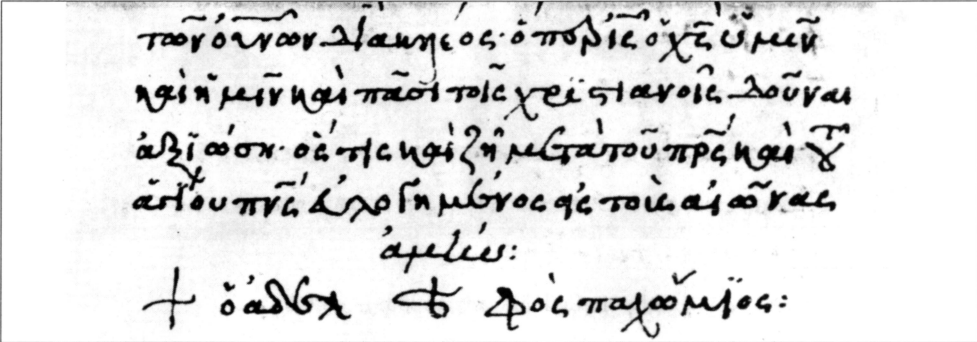 τῶν οὐνῶν ὅπερ ις ὁ χς ὑμῖν
καὶ ἡμῖν καὶ πᾶσι τοῖς χριστιανοῖς δοῦναι
ἀξιώση· ὅς τις καὶ ζῆ μετὰ τοῦ πρς καὶ τοῦ
ἁγίου πνς εὐλογημένος εἰς τοὺς αἰῶνας
ἀμήν:
+ ὁ ἀδελ + φὸς παχώμιος: